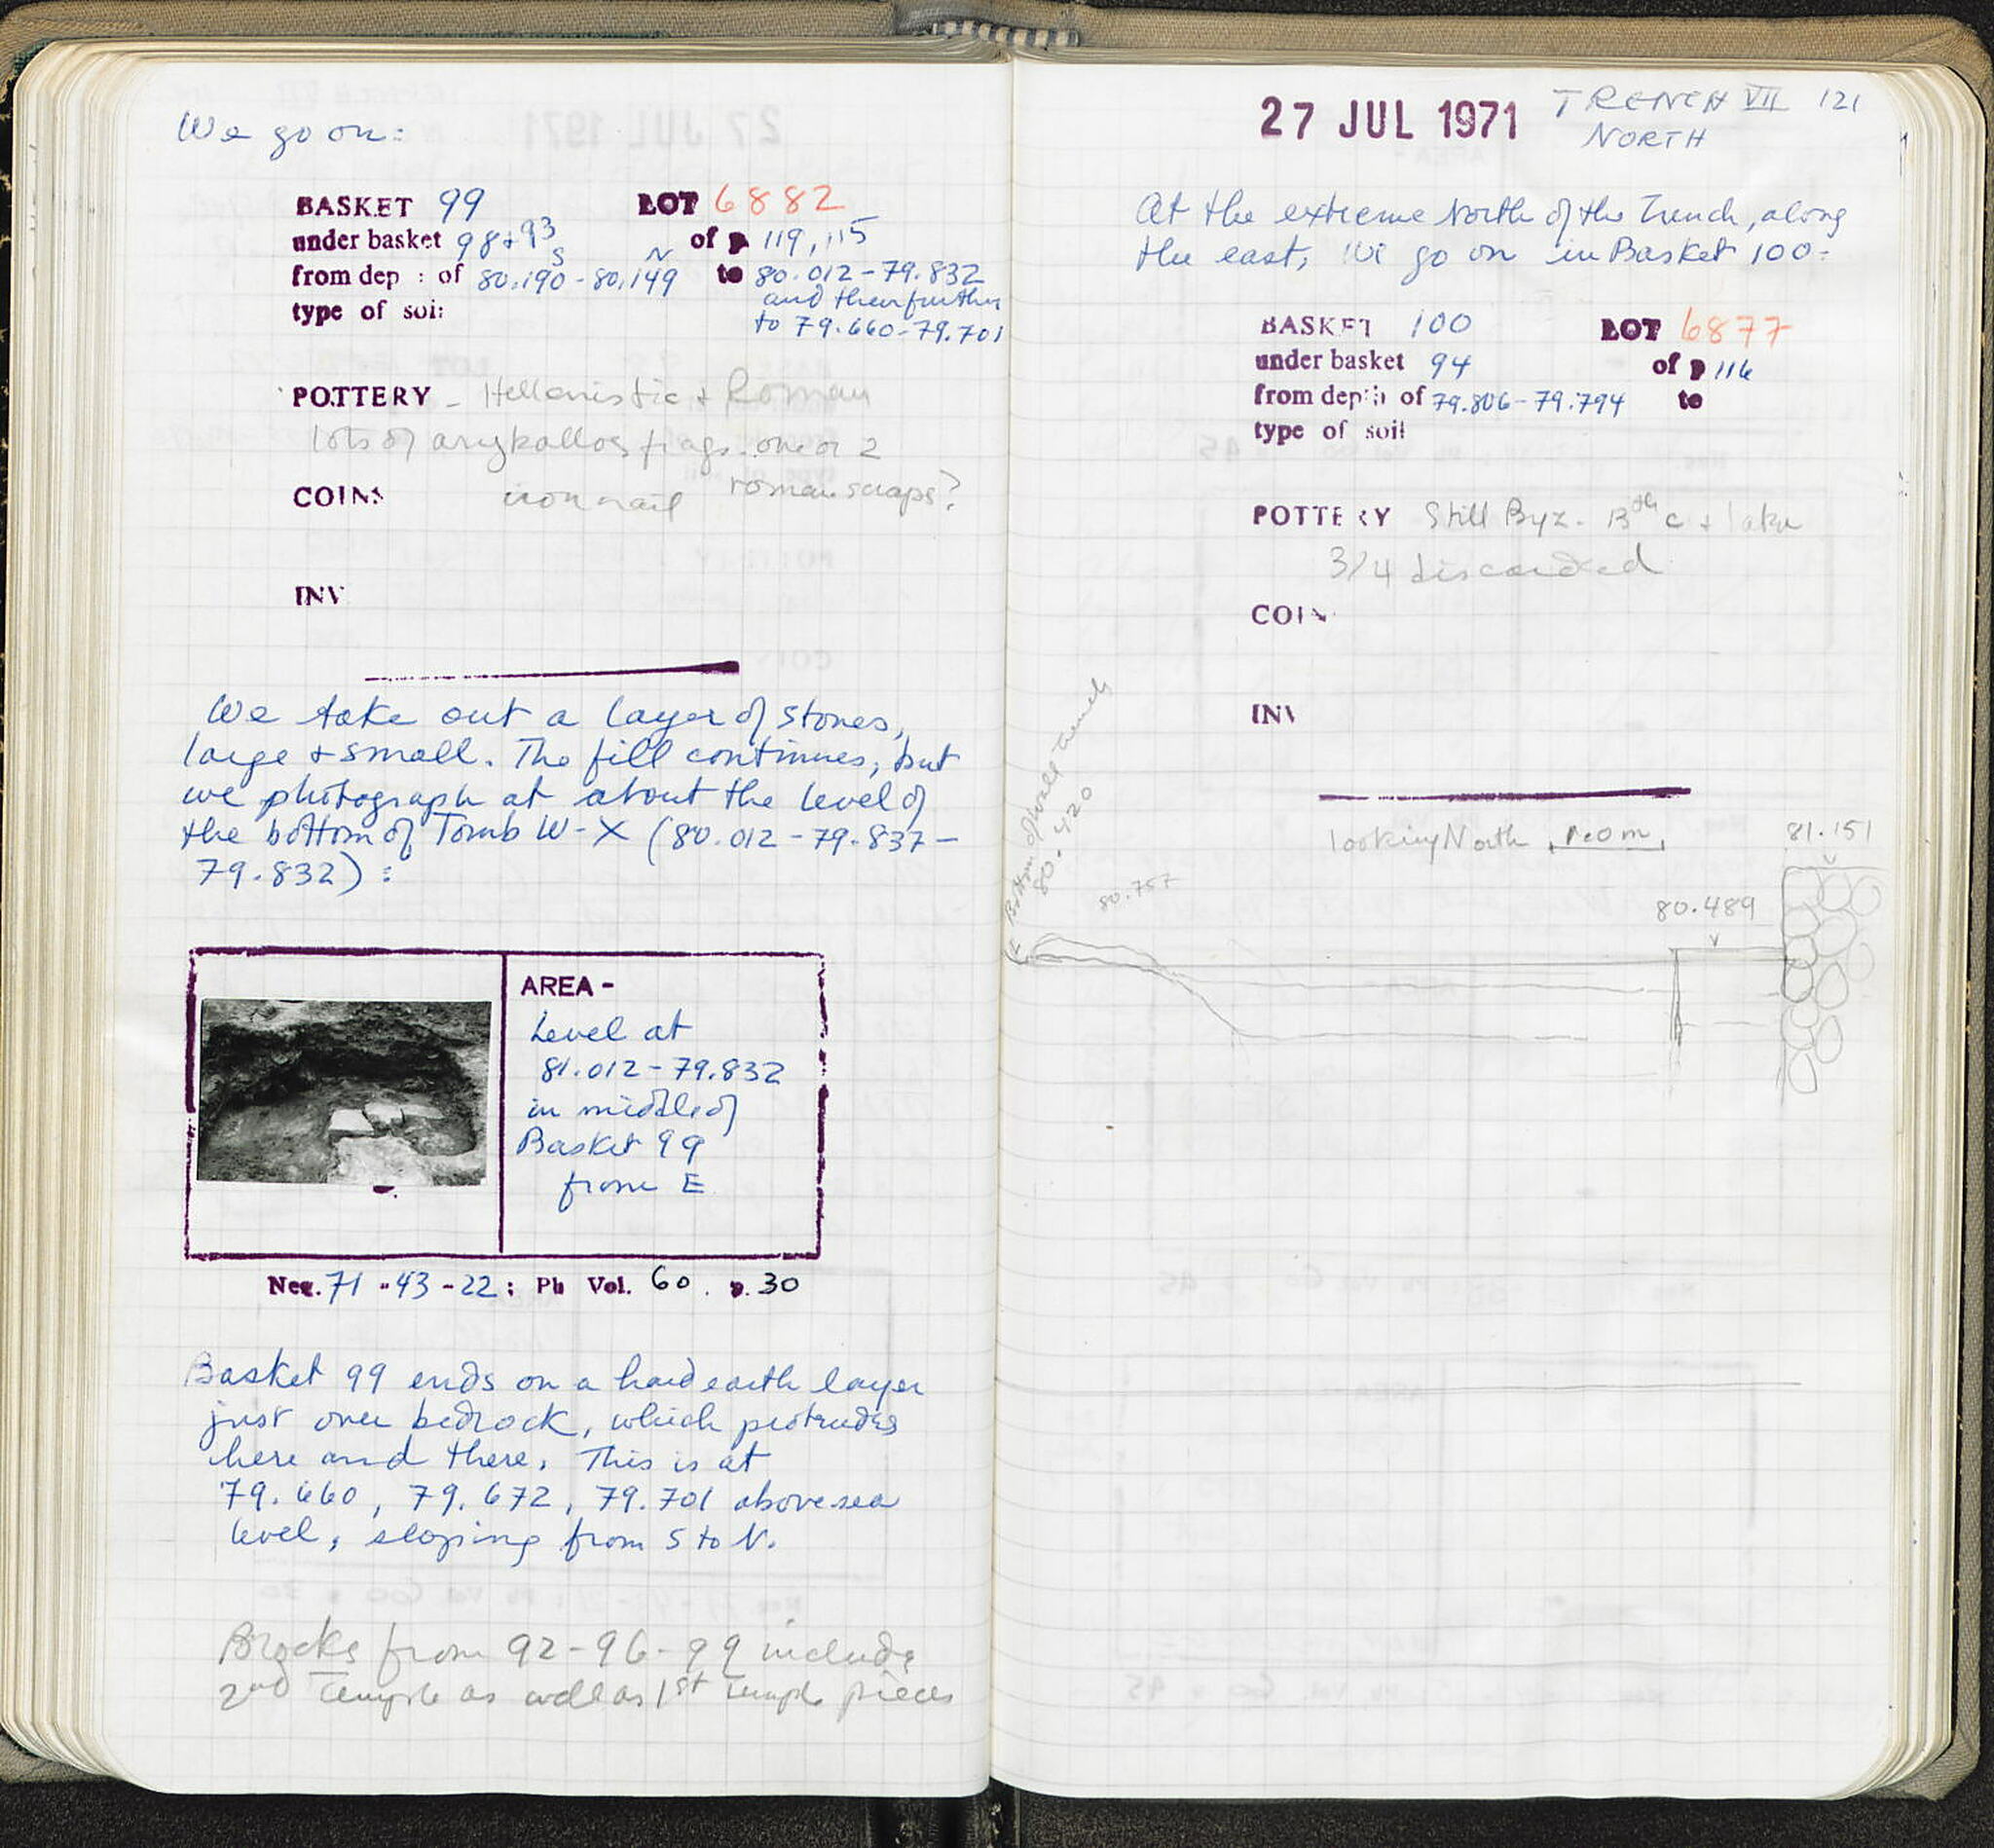 We go on:
BASKET 99 LOT 6882
under basket 98+93 of p 119, 115
S N
from dep : of 80.190-80.149 to 80.012-79.832
and then further
to 79.660-79.701
type of soil
POTTERY - Hellenistic + Roman
lots of aryballos frags. one or 2
roman scraps?
COINS iron nail
INV
We take out a layer of stones,
large + small. The fill continues, but
we photograph at about the level of
the bottom of Tomb W-X (80.012-79.837-
79.832):
AREA -
Level at
81.012-79.832
in middle of
Basket 99
from E
Neg. 71-43-22; Ph Vol. 60. p. 30
Basket 99 ends on a hard earth layer
just over bedrock, which protrudes
here and there. This is at
79.660, 79.672, 79.701 above sea
level, sloping from S to N.
Blocks from 92-96-99 include
2nd Temple as well as 1st temple pieces
27 JUL 1971 TRENCH VII 121
NORTH
At the extreme North of the Trench, along
the east, we go on in Basket 100:
BASKET 100 LOT 6877
under basket 94 of p 116
from depth of 79.806-79.794 to
type of soil
POTTERY Still Byz. 13th c + later
3/4 discarded
COIN
INV
looking North 1.00m.
81.151
80.489
80.757
Bottom of wall trench
80.420